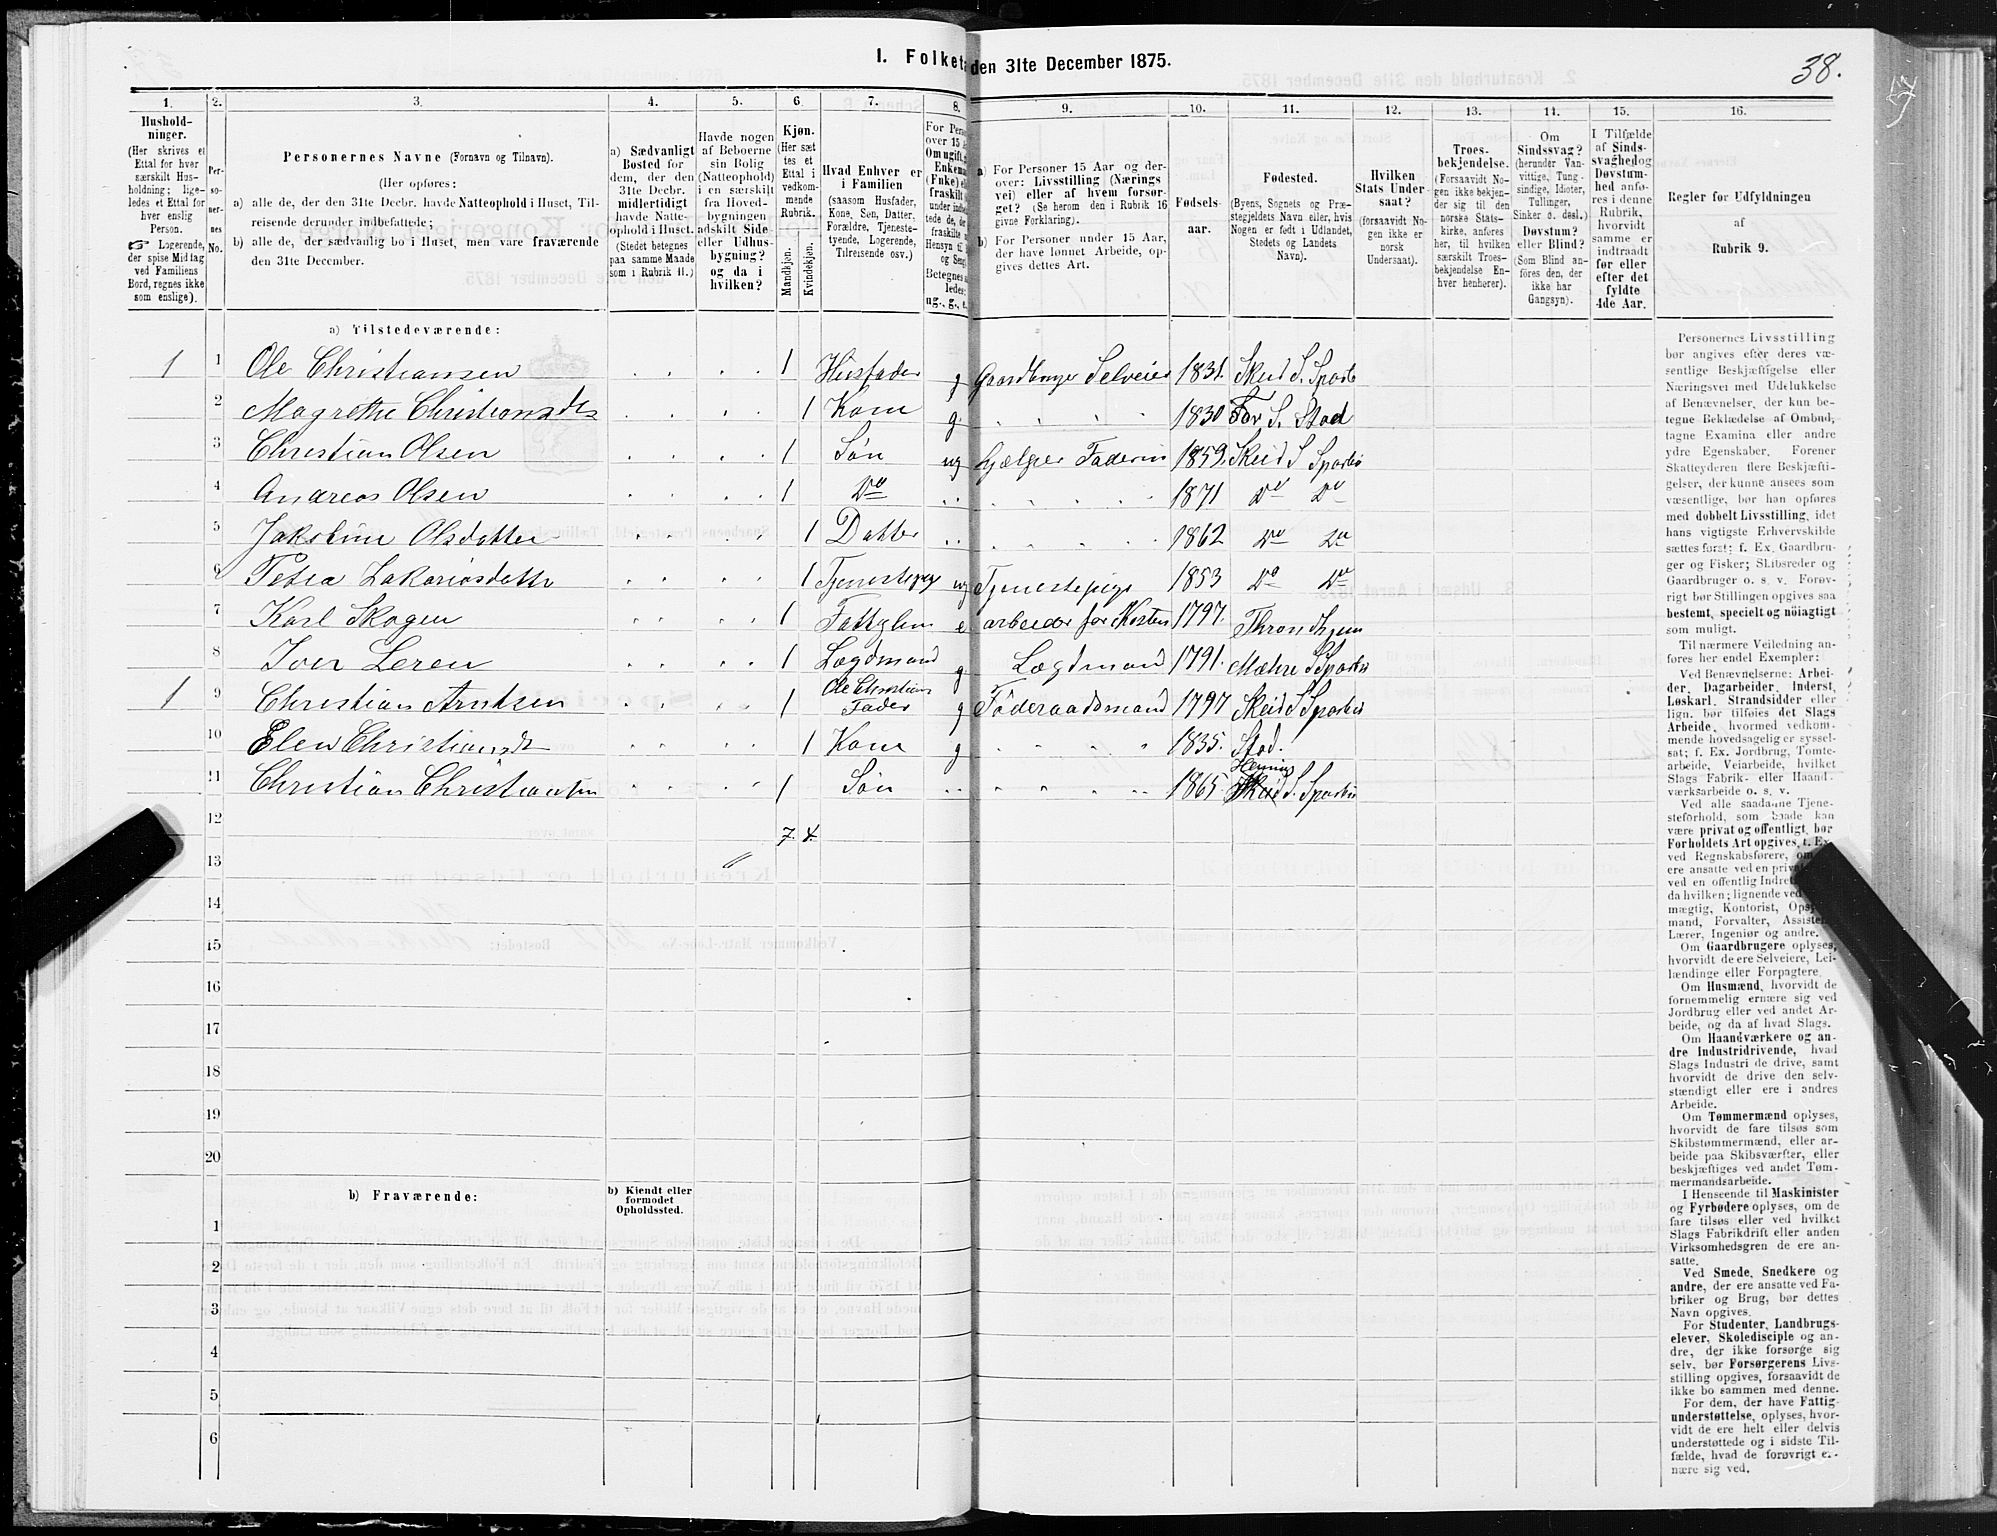 I. Folketæ
den 31te December 1875.
38.
1.
2.
3.
4.
5.
6.
7.
8.
9.
10.
11.
12.
13.
14.
15.
16.
Hushold-
ninger.
(Her skrives et
Ettal for hver
særskilt Hus-
holdning; lige-
ledes et Ettal for
hver enslig
Person.
☞ Logerende,
der spise Middag
ved Familiens
Bord, regnes ikke
som enslige).
Per-
so-
ner-
nes
No.
Personernes Navne (Fornavn og Tilnavn).
(Her opføres:
a) alle de, der den 31te Decbr. havde Natteophold i Huset, Til-
reisende derunder indbefattede;
b) alle de, der sædvanlig bo i Huset, men vare fraværende
den 31te December.
a) Sædvanligt
Bosted for
dem, der den
31te Decbr.
midlertidigt
havde Natte-
ophold i Huset.
(Stedet betegnes
paa samme Maade
som i Rubrik 11.)
Havde nogen
af Beboerne
sin Bolig
(Natteophold)
i en særskilt
fra Hoved-
bygningen
adskilt Side-
eller Udhus-
bygning?
og da i
hvilken?
Kjøn.
(Her sæt
tes et
Ettal i
vedkom-
mende
Rubrik.
Mandkjøn.
Kvindekjøn.
Hvad Enhver er
i Familien
(saasom Husfader,
Kone, Søn, Datter,
Forældre, Tjeneste-
tyende, Logerende,
Tilreisende osv.)
For Pers
over 15 A
Om ugift,
Enkem
(Enke) el
fraskilt
ung., g., e.
a) For Personer 15 Aar og der-
over: Livsstilling (Nærings
vei) eller af hvem forsør-
get? (Se herom den i Rubrik 16
givne Forklaring).
b) For Personer under 15 Aar,
der have lønnet Arbeide, op-
gives dettes Art.
Fødsels-
aar.
Fødested.
(Byens, Sognets og Præ-
stegjeldets Navn eller, hvis
Nogen er født i Udlandet,
Stedets og Landets
Navn).
Hvilken
Stats Under-
saat?
(forsaavidt No-
gen ikke er
norsk
Undersaat).
Troes-
bekjendelse.
(Forsaavidt No-
gen ikke bekjen-
der sig til den
norske Stats-
kirke, anføres
her, til hvilken
særskilt Troes-
bekjendelse En-
hver henhører).
Om
Sindssvag?
(herunder Van-
vittige, Tung-
sindige, Idioter,
Tullinger,
Sinker o. desl.)
Døvstum?
eller Blind?
(Som Blind an-
føres den, der
ikke har
Gangsyn).
I Tilfælde
af Sinds-
svaghed og
Døvstum-
hed anfø-
res i denne
Rubrik,
hvorvidt
samme er
indtraadt
før eller
efter det
fyldte
4de Aar.
Regler for Udfyldningen
af
Rubrik 9.
a) Tilstedeværende:
1 1 Ole Christiansen 1 Husfader g Gaardbruger Selveier 1831. Skeid S. Sparbo
2 Magrethe Christiansdtr 1 Kone g 1830 For S. Stod
3 Christian Olsen 1 Søn ug hjælper Faderen 1859. Skeid S Sparbo
4 Andreas Olsen 1 Do 1871 Do Do
5 Jakobine Olsdatter 1 Datter 1862 Do Do
6 Petra Zakariasdatter 1 Tjenestepige ug Tjenestepige 1853 Do Do
7 Karl Skogen 1 Fattiglem e arbeider for Kosten 1797. Throndhjem
8 Iver Leren 1 Lægdmand g Lægdmand 1791. Mæhre S Sparbo
1 9 Christian Arntsen 1 Ole Christians Fader g Føderaadsmand 1797 Skeid S Sparbo
10 Elen Christiansdt 1 Kone g 1835. Stod.
11 Christian Christiansen 1 Søn 1865. Henning S. Sparbo
12 7. 4.
13
14
15
16
17
18
19
20
b) Fraværende:
b) Kjendt eller
formodet
Opholdssted.
1
2
3
4
5
6
Personernes Livsstilling
bør angives efter deres væ-
sentlige Beskjæftigelse eller
Næringsvei med Udelukkelse
af Benævnelser, der kun be-
tegne Beklædelse af Ombud,
tagne Examina eller andre
ydre Egenskaber. Forener
Skatteyderen flere Beskjæfti-
gelser, der kunne ansees som
væsentlige, bør han opføres
med dobbelt Livsstilling, idet
hans vigtigste Erhvervskilde
sættes først; f. Ex. Gaardbru-
ger og Fisker; Skibsreder og
Gaardbruger o. s. v. Forøv-
rigt bør Stillingen opgives saa
bestemt, specielt og nøiagtigt
som muligt.
Til nærmere Veiledning an-
føres her endel Exempler:
Ved Benævnelserne: Arbei-
der, Dagarbeider, Inderst,
Løskarl, Strandsidder eller
lign. bør tilføies det Slags
Arbeide, hvormed vedkom-
mende hovedsagelig er syssel-
sat; f. Ex. Jordbrug, Tomte-
arbeide, Veiarbeide, hvilket
Slags Fabrik- eller Haand-
værksarbeide o. s. v.
Ved alle saadanne Tjene-
steforhold, som baade kan
være privat og offentligt, bør
Forholdets Art opgives, f. Ex.
ved Regnskabsførere, om
ere ansatte ved en privat
ved en offentlig Indret
da hvilken; lignende ved
mægtig, Kontorist, Ops
mand, Forvalter, Assiste
Lærer, Ingeniør og andre.
Om Gaardbrugere oplyses,
hvorvidt de ere Selveiere, Lei-
lændinge eller Forpagtere.
Om Husmænd, hvorvidt de
fornemmelig ernære sig ved
Jordbrug eller ved andet Ar-
beide, og da af hvad Slags.
Om Haandværkere og an-
dre Industridrivende, hvad
Slags Industri de drive, samt
hvorvidt de drive den selv-
stændigt eller ere i andres
Arbeide.
Om Tømmermænd oplyses,
hvorvidt de fare tilsøs som
Skibstømmermænd, eller ar-
beide paa Skibsværfter, eller
beskjæftiges ved andet Tøm-
mermandsarbeide.
I Henseende til Maskinister
og Fyrbødere oplyses, om de
fare tilsøs eller ved hvilket
Slags Fabrikdrift eller anden
Virksomhedsgren de ere an-
satte.
Ved Smede, Snedkere og
andre, der ere ansatte ved Fa-
briker og Brug, bør dettes
Navn opgives.
For Studenter, Landbrugs-
elever, Skoledisciple og an-
dre, der ikke forsørge sig
selv, bør Forsørgerens Livs-
stilling opgives, forsaavidt de
ikke bo sammen med denne.
For dem, der have Fattig-
understøttelse, oplyses, hvor-
vidt de ere helt eller delvis
understøttede og i sidste Til-
fælde, hvad de forøvrigt er-
nære sig ved.